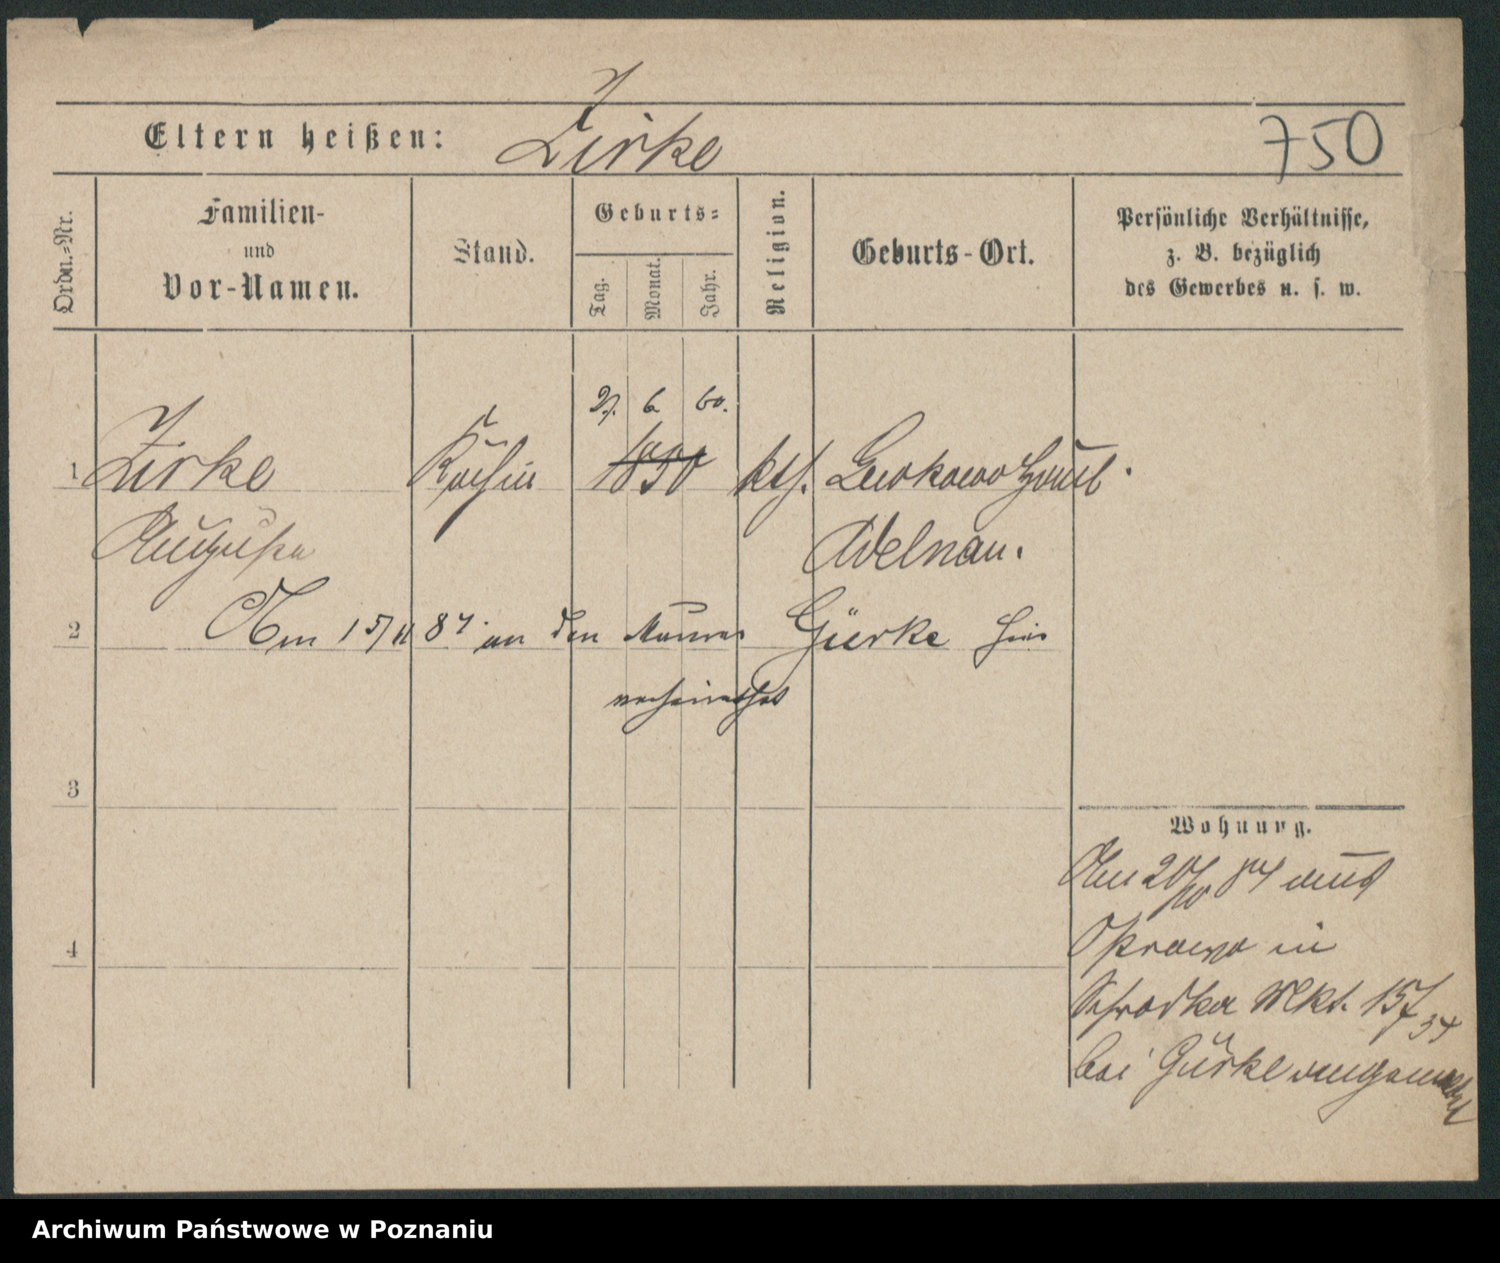 Eltern heißen: Zirke 750
Ordn.-Nr.
Familien-
und
Vor-Namen.
Stand.
Geburts-
Tag.
Monat.
Jahr.
Religion.
Geburts-Ort.
Persönliche Verhältnisse,
z. B. bezüglich
des Gewerbes u. s. w.
27. 6 60.
1 Zirke Köchin 1850 kth. Lewkowo Hauld
Augusta Adelnau.
2 Am 15/11 87 an den Maurer Gürke hier
verheirathet
3
Wohnung.
Am 20/10 84 aus
4
in
Schrodka Mkt. 15/
bei Gürke angemeldet
Archiwum Państwowe w Poznaniu